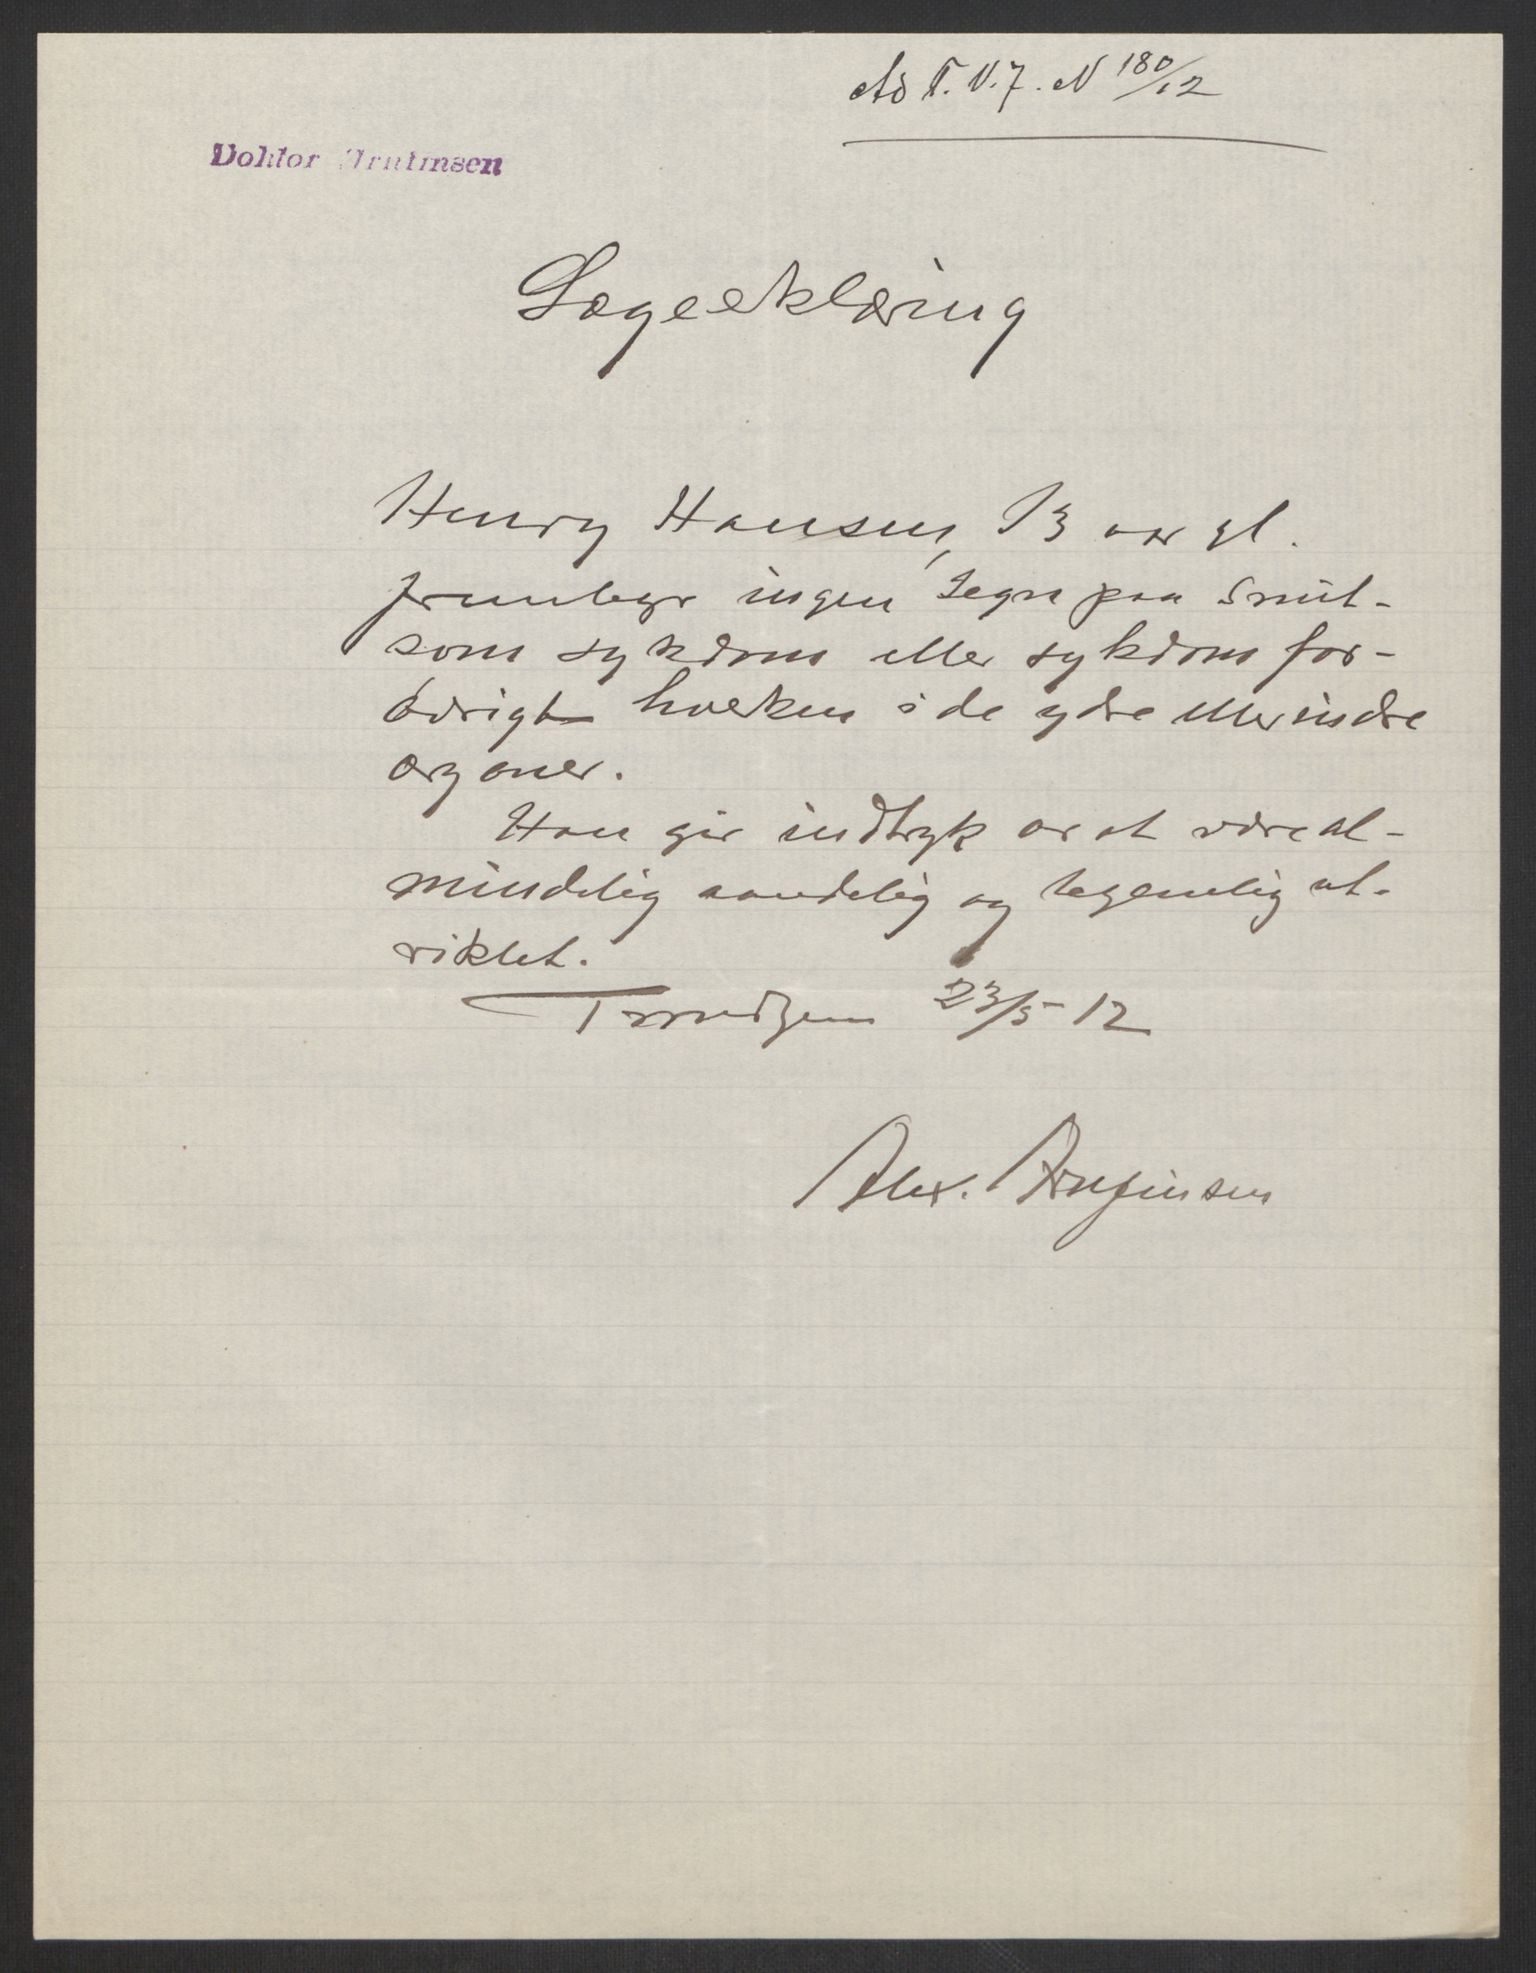 Ad T.V.J. N 180/12
Doktor
Lægeerklæring
Henry Hansen, 13 aar gl.
frembyr ingen tegn paa smit-
som sykdom eller sykdom for-
övrigt hverken i de ydre eller indre
organer.
Han gir indtryk av at være al-
mindelig aandelig og legemlig ut-
viklet.
Trondhjem 23/5-12
Alex.